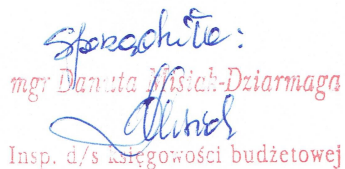 Sporządziła:
mgr Danuta Misiak-Dziarmaga
Insp. d/s księgowości budżetowej